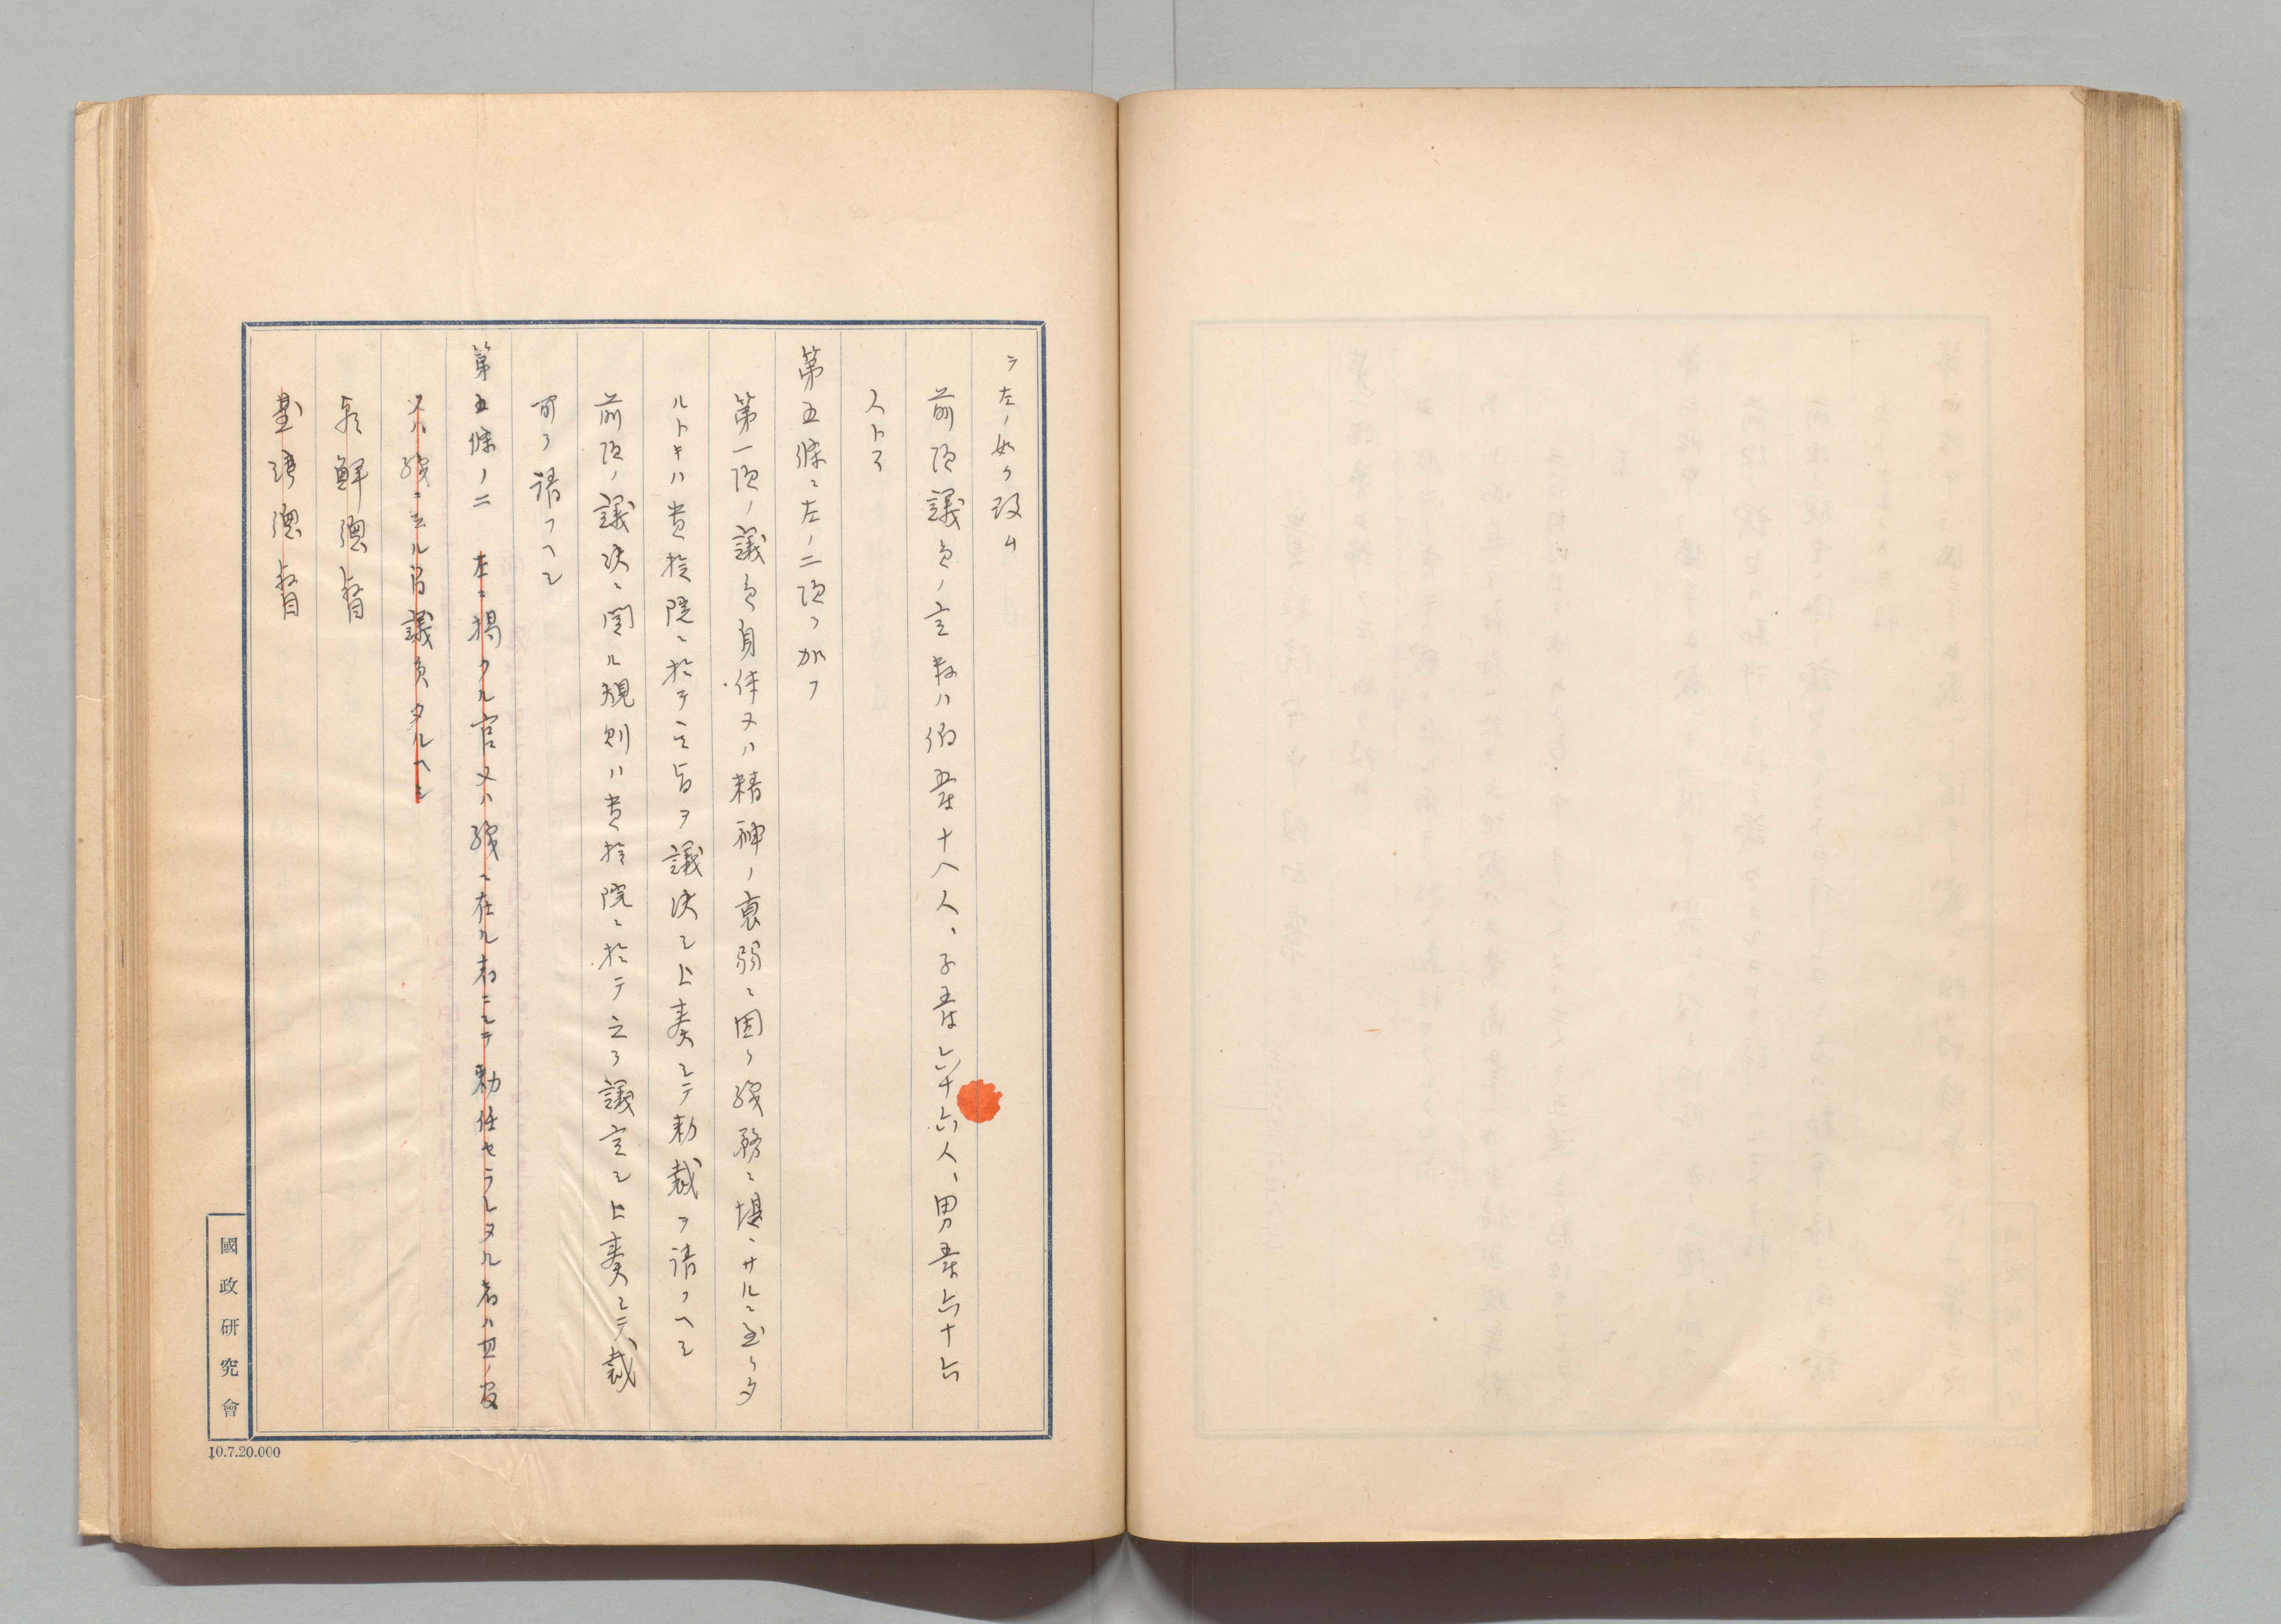 ヲ左ノ如ク改ム
前項議員ノ定数ハ伯爵十八人、子爵六十六人、男爵六十六
人トス
第五條ニ左ノ二項ヲ加フ
第一項ノ議員身体又ハ精神ノ衰弱ニ因リ職務ニ堪ヘサルニ至リタ
ルトキハ貴族院ニ於テ其ノ旨ヲ議決シ上奏シテ勅裁ヲ請フヘシ
前項ノ議決ニ関スル規則ハ貴族院ニ於テ之ヲ議定シ上奏シテ裁
可ヲ請フヘシ
第五條ノ二 左ニ揚クル官又ハ職ニ在ル者ニシテ勅任セラレタル者ハ其ノ官
又ハ職ニ在ル間議員タルヘシ
朝鮮總督
臺湾總督
國政研究會
10.7.20.000